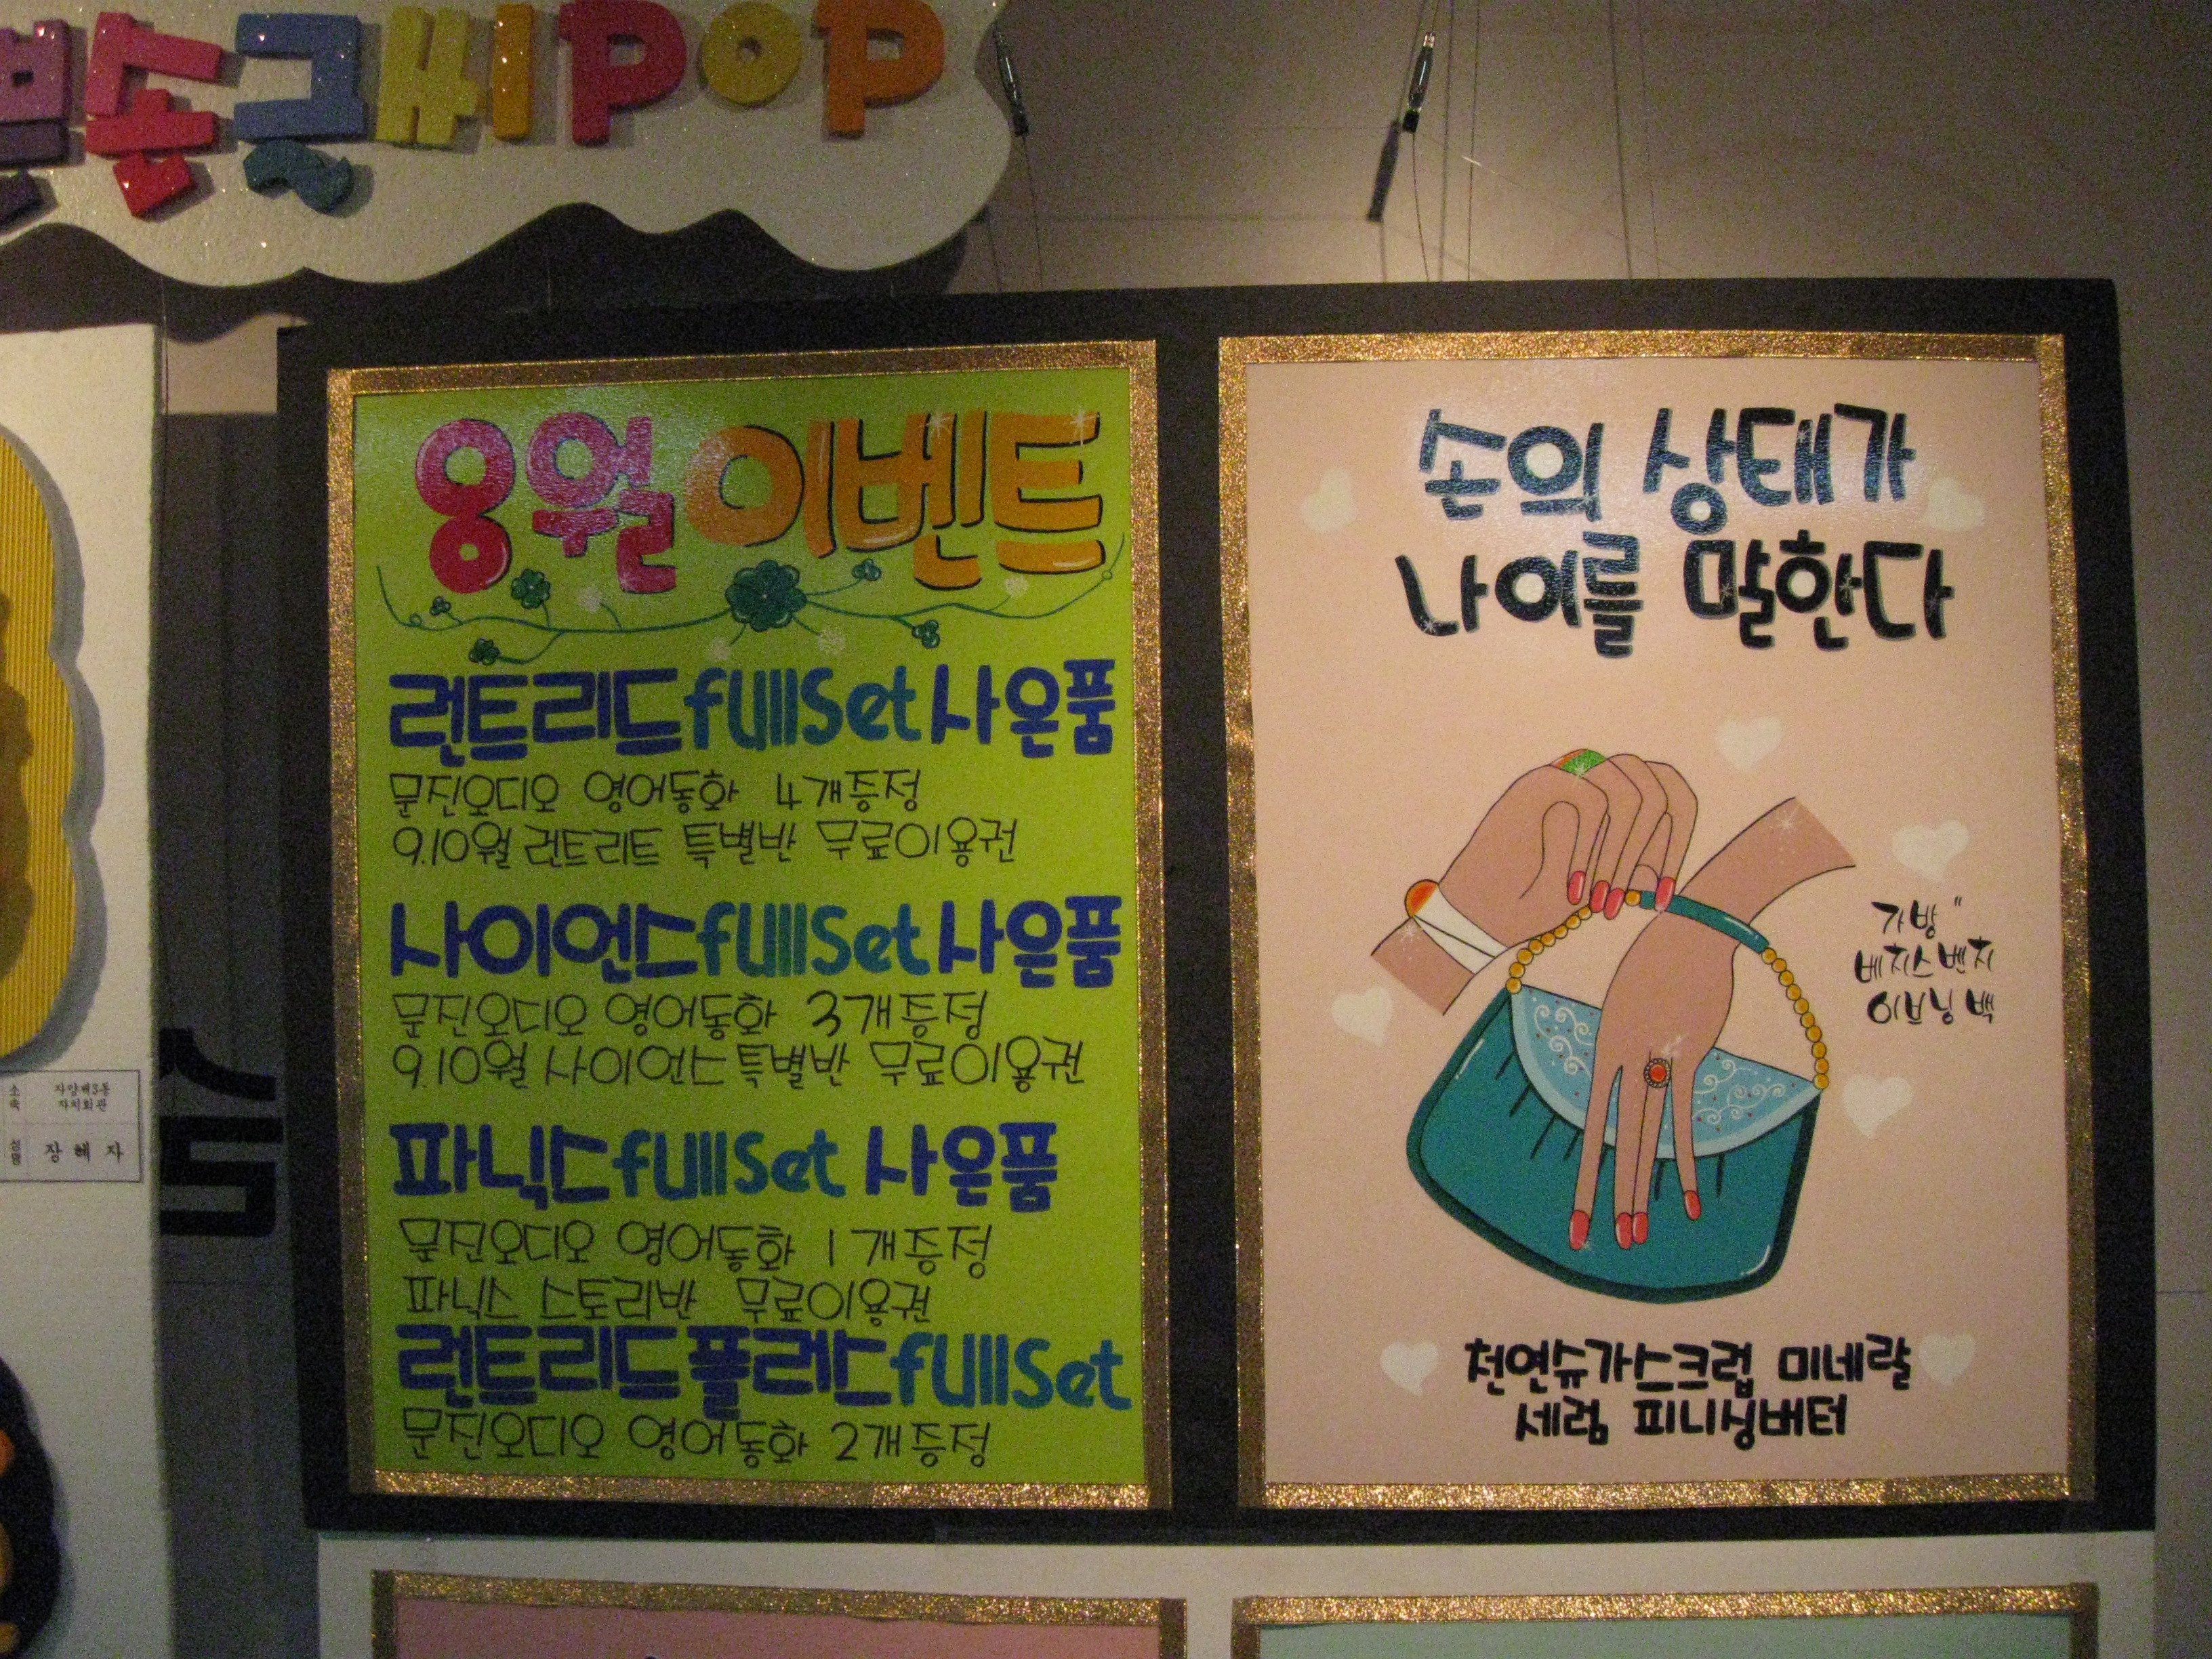 예쁜글씨POP
8월 이벤트
런트리드fullset 사은품
문진오디오 영어동화 4개증정
9.10월 런트리트 특별반 무료이용권
사이언스fullset 사은품
문진오디오 영어동화 3개증정
9.10월 사이언스 특별반 무료이용권
파닉스fullset 사은품
문진오디오 영어동화 1개증정
파닉스 스토리반 무료이용권
런트리드플러스fullset
문진오디오 영어동화 2개증정
손의 상태가
나이를 말한다
가방"
베치스벤치
이브닝 백
천연슈가스크럽 미네랄
세럼 피니싱버터
소속 자양제3동
자치회관
성명 장혜자